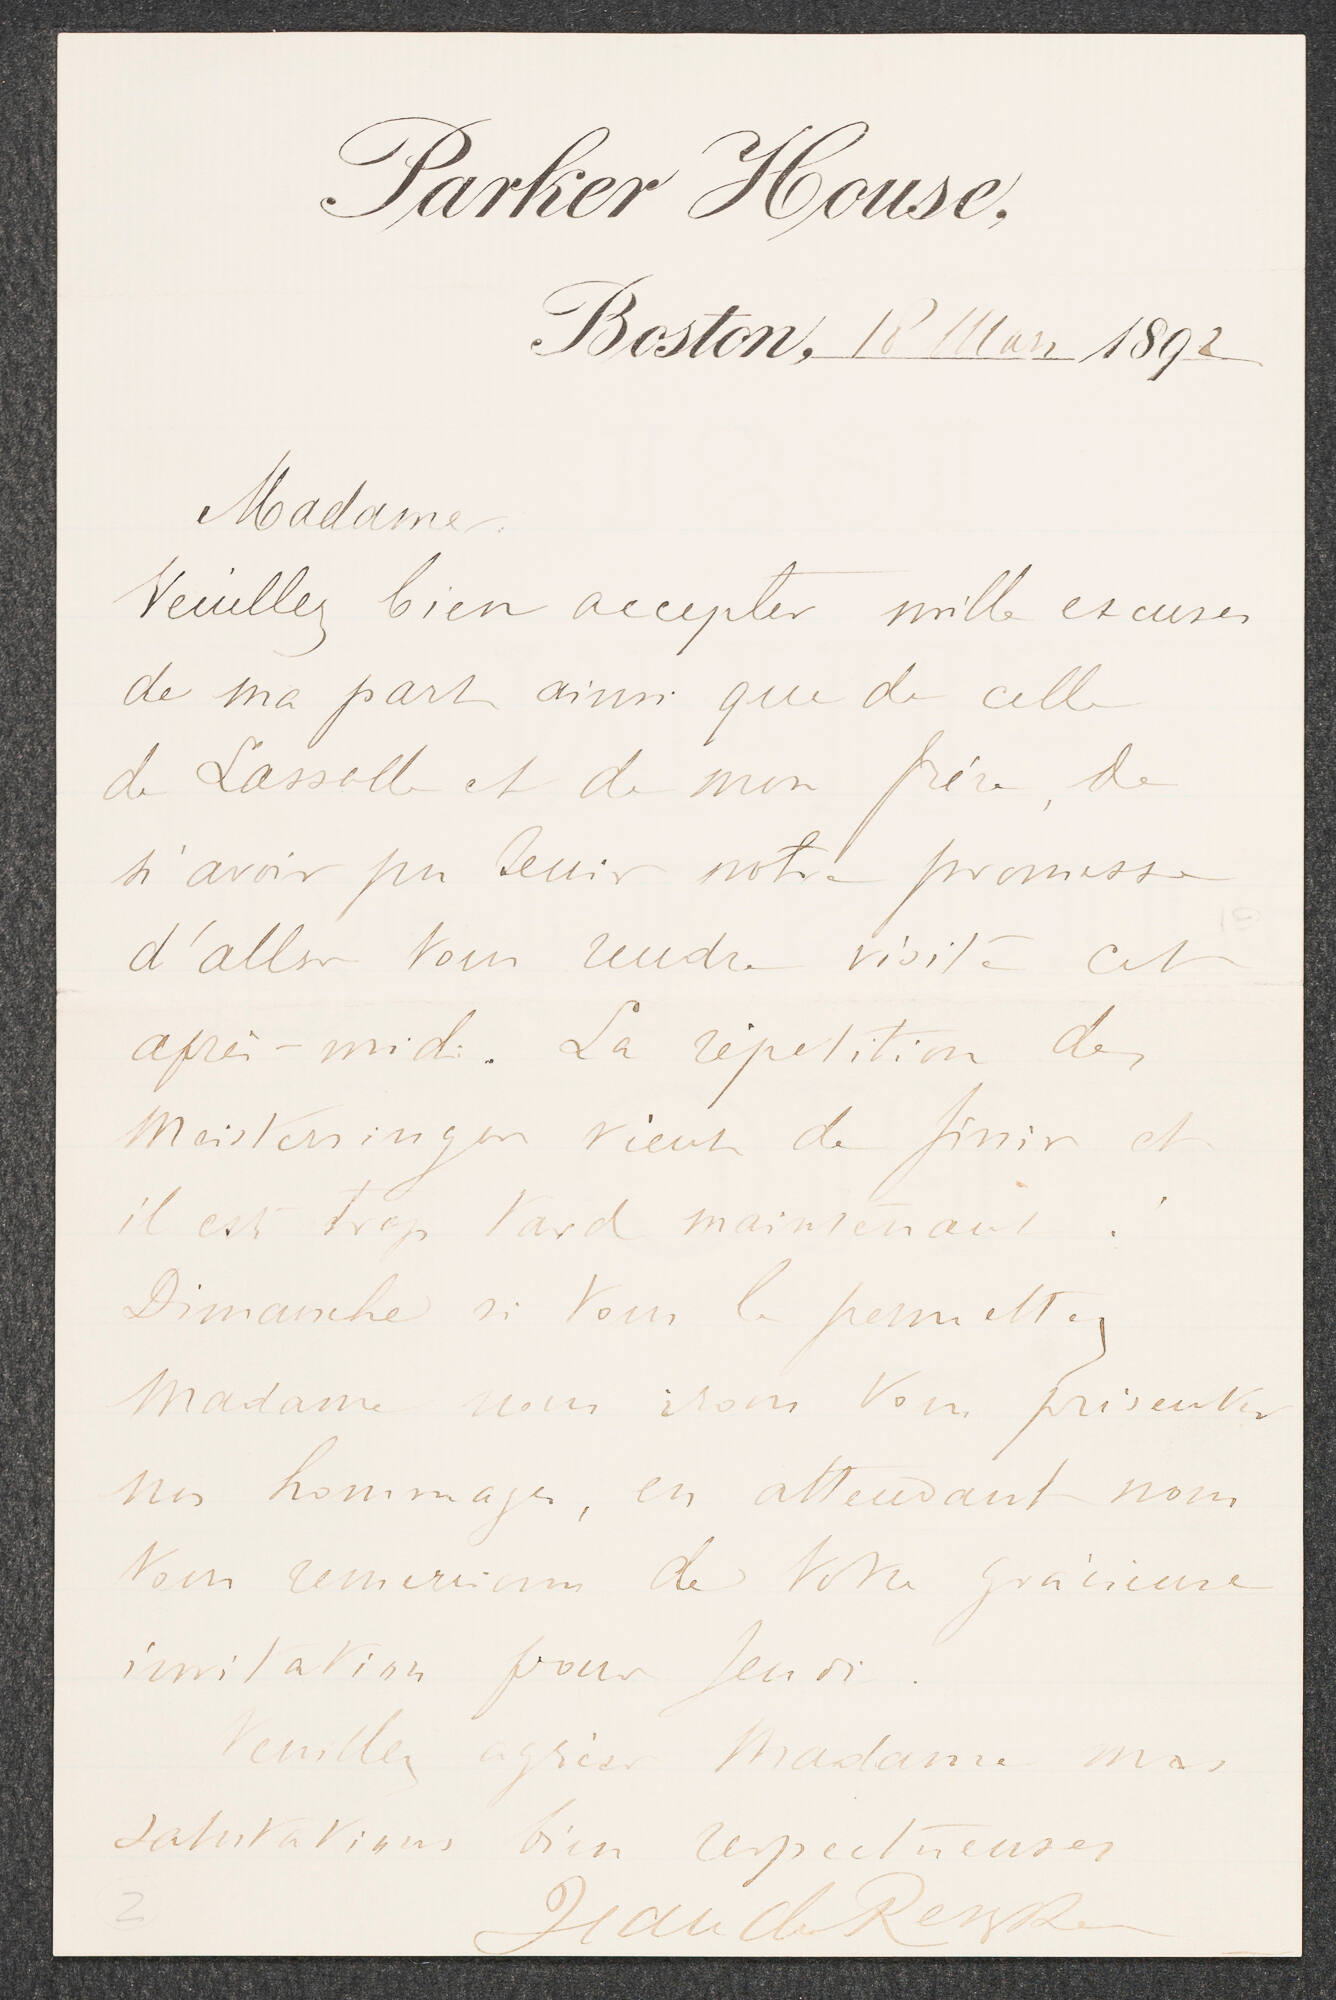 Parker House.
Boston, 18 Mars 1892
Madame
Veuillez bien accepter mille excuses
de ma part ainsi que de celle
de Lassalle et de mon frère, de
n'avoir pu tenir notre promesse
d'aller vous rendre visite cet
après-midi. La répétition des
Meistersinger vient de finir et
il est trop tard maintenant !
Dimanche si vous le permettez
Madame nous irons vous présenter
nos hommages, en attendant nous
vous remercions de votre gracieuse
invitation pour Jeudi.
Veuillez agréer Madame mes
salutations bien respectueuses
Jean de Reszke
2